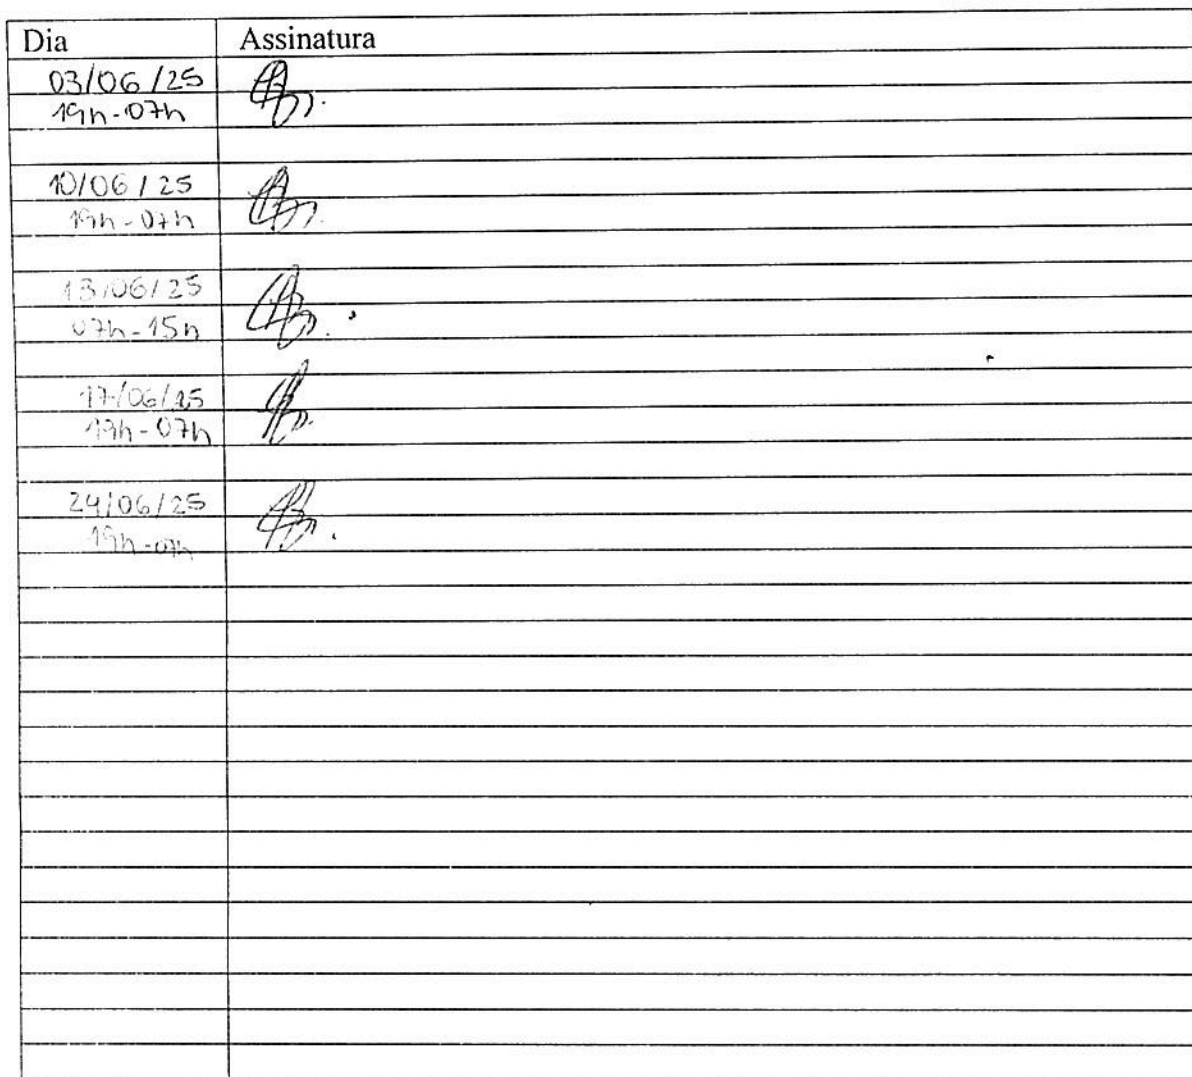 Dia Assinatura
03/06/25
19h-07h
10/06/25
19h-07h
13/06/25
07h-15h
17/06/25
19h-07h
24/06/25
19h-07h